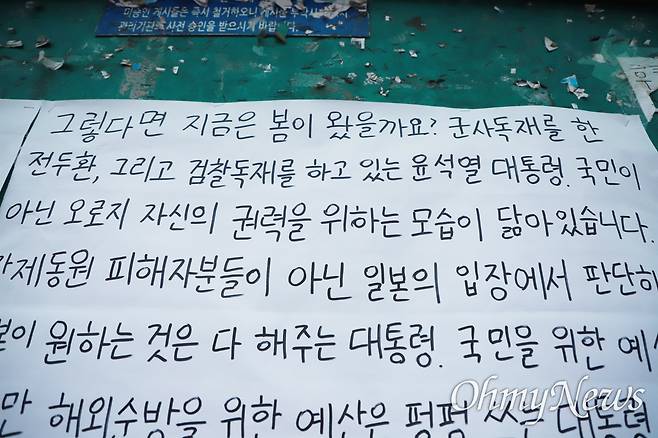 미승인 게시물은 즉시 철거하오니
관리기관 사전 승인을 받으시기 바랍니다.
그렇다면 지금은 봄이 왔을까요? 군사독재를 한
전두환, 그리고 검찰독재를 하고 있는 윤석열 대통령. 국민이
아닌 오로지 자신의 권력을 위하는 모습이 닮아있습니다.
강제동원 피해자분들이 아닌 일본의 입장에서 판단하
원하는 것은 다 해주는 대통령. 국민을 위한 예
해외순방을 위한 예산은 펑펑 쓰는 대통령
OhmyNews